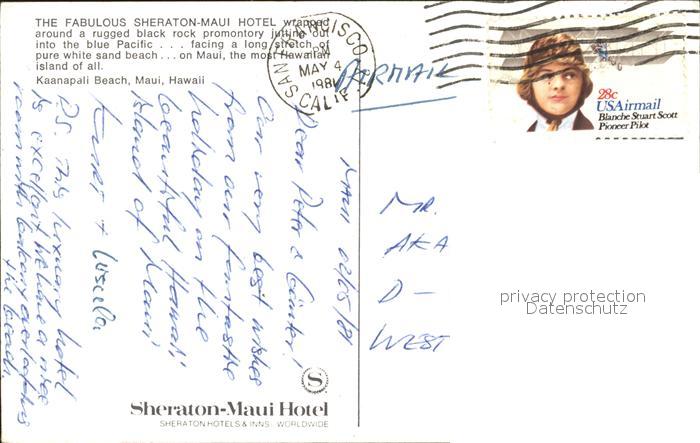 THE FABULOUS SHERATON-MAUI HOTEL wrapped
around a rugged black rock promontory jutting out
into the blue Pacific . . . facing a long stretch of
pure white sand beach . . . on Maui, the most Hawaiian
island of all.
Kaanapali Beach, Maui, Hawaii
SAN FRANCISCO
PM
MAY 4
CALIF
AIRMAIL
28c
USAirmail
Blanche Stuart Scott
Pioneer Pilot
MAUI 02/05/81
Dear Peter & Günter!
Our very best wishes
from our fantastic
holiday on the
beautiful Hawaii
island of Maui!
+
PS. This luxury hotel
is excellent. We have a nice
room with balcony overlooking
the beach.
MR.
AKA
D-
WEST
privacy protection
Datenschutz
S
Sheraton-Maui Hotel
SHERATON HOTELS & INNS, WORLDWIDE